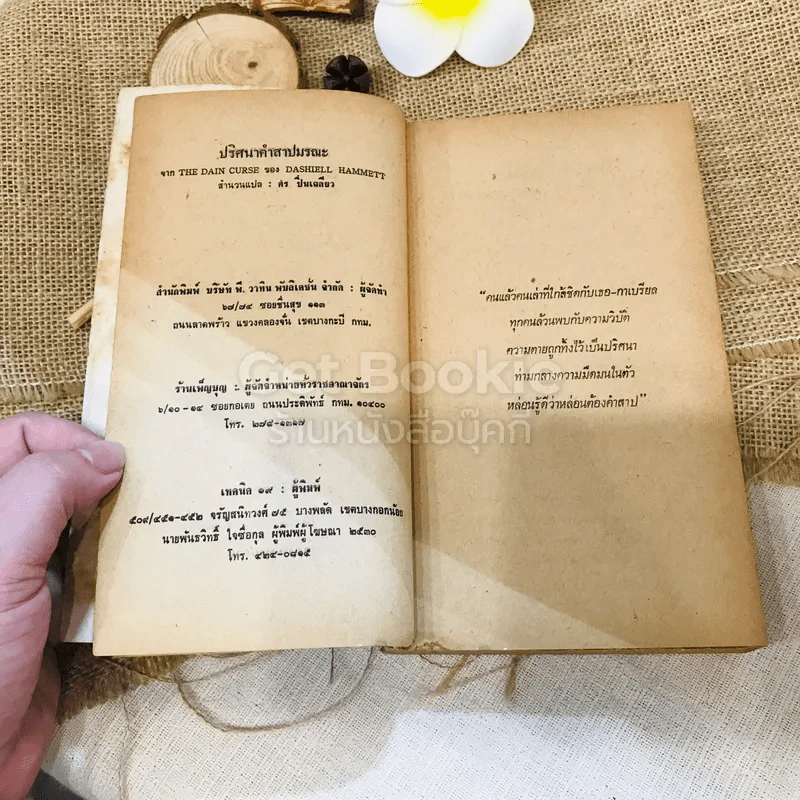 ปริศนาคำสาปมรณะ
จาก THE DAIN CURSE ของ DASHIELL HAMMETT
สำนวนแปล : ศร ปืนเฉลียว
สำนักพิมพ์ บริษัท พี. วาทิน พับลิเคชั่น จำกัด : ผู้จัดทำ
๖๗/๗๔ ซอยชื่นสุข ๑๑๓
ถนนลาดพร้าว แขวงคลองจั่น เขตบางกะปิ กทม.
ร้านเพ็ญบุญ : ผู้จัดจำหน่ายทั่วราชอาณาจักร
๖/๑๐-๑๔ ซอยกอเตย ถนนประดิพัทธ์ กทม. ๑๐๔๐๐
โทร. ๒๗๘-๑๓๑๗
เทคนิค ๑๙ : ผู้พิมพ์
๕๐๙/๔๕๑-๔๕๒ จรัญสนิทวงศ์ ๗๕ บางพลัด เขตบางกอกน้อย
นายพันธวิทธิ์ ใจซื่อกุล ผู้พิมพ์ผู้โฆษณา ๒๕๓๐
โทร. ๔๒๔-๐๘๑๕
“คนแล้วคนเล่าที่ใกล้ชิดกับเธอ-กาเบรียล
ทุกคนล้วนพบกับความวิบัติ
ความตายถูกทิ้งไว้เป็นปริศนา
ท่ามกลางความมืดมนในตัว
หล่อนรู้ดีว่าหล่อนต้องคำสาป”
Got Bookie
ร้านหนังสือบุ๊คกี้